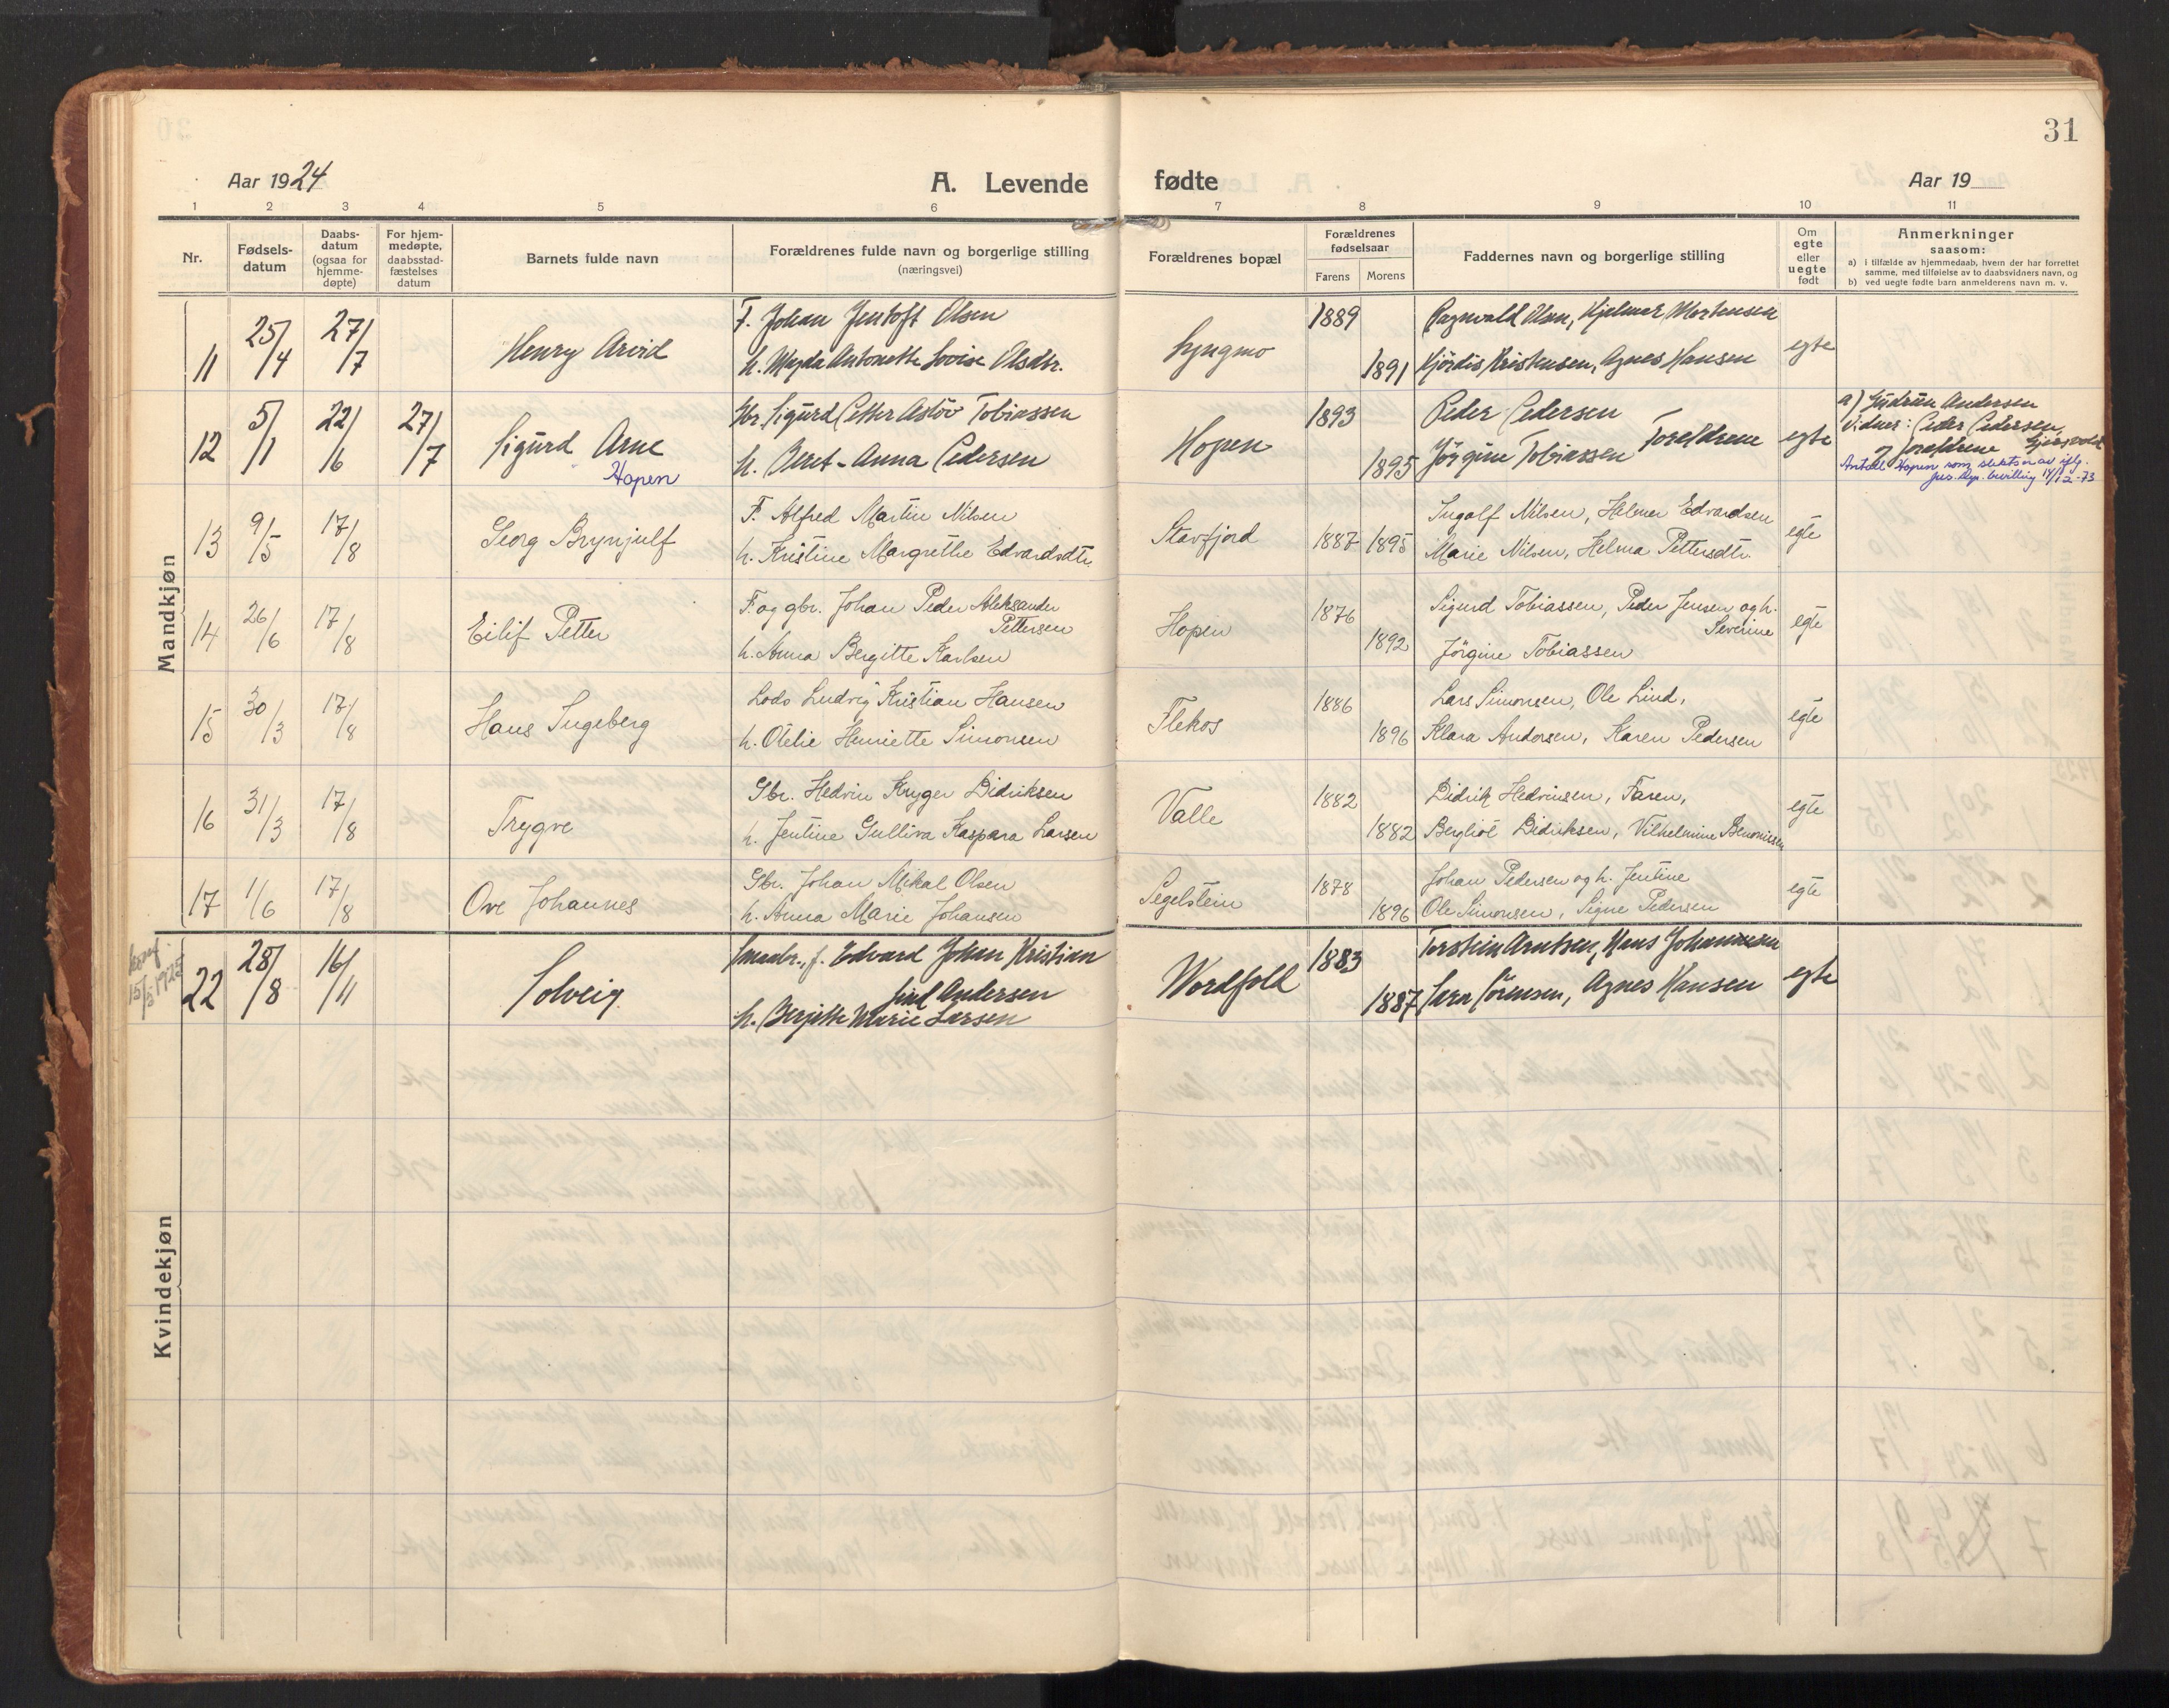 31
Aar 1924
A. Levende fødte
Aar 19
1 2 3 4 5 6 7 8 9 10 11
Nr.
Fødsels-
datum
Daabs-
datum
(ogsaa for
hjemme-
døpte)
For hjem-
medøpte,
daabsstad-
fæstelses
datum
Barnets fulde navn
Forældrenes fulde navn og borgerlige stilling
(næringsvei)
Forældrenes bopæl
Forældrenes
fødselsaar
Farens Morens
Faddernes navn og borgerlige stilling
Om
egte
eller
uegte
født
Anmerkninger
saasom:
a) i tilfælde av hjemmedaab, hvem der har forrettet
samme, med tilføielse av to daabsvidners navn, og
b) ved uegte fødte barn anmelderens navn m. v.
Mandkjøn
11 25/4 27/7 Henry Arvid
F. Johan Jentoft Olsen
h. Magda Antonette Lovise Olsdtr.
Lyngmo 1889 1891
Ragnvald Olsen, Hjelmar Mortensen
Hjördis Kristensen, Agnes Hansen
egte
12 5/1 22/6 27/7 Sigurd Arne
Hopen
Gbr. Sigurd Petter Astöv Tobiassen
h. Beret-Anna Pedersen
Hopen 1893 1895
Peder Pedersen
Jörgine Tobiassen Foreldrene
egte
a) Gudrun Andersen
Vidner: Peder Pedersen,
og foreldrene
Antatt Hopen som slektsnavn iflg.
jus. dep. bevilling 14/12-73
13 9/5 17/8 Georg Brynjulf
F. Alfred Martin Nilsen
h. Kristine Margrethe Edvardsdtr.
Stavfjord 1887 1895
Ingolf Nilsen, Helmer Edvardsen
Marie Nilsen, Helma Pettersdtr.
egte
14 26/6 17/8 Eilif Petter
F. og gbr. Johan Peder Aleksander
Pettersen
h. Anna Bergitte Karlsen
Hopen 1876 1892
Sigurd Tobiassen, Peder Jensen og h.
Severine
Jörgine Tobiassen
egte
15 30/3 17/8 Hans Ingeberg
Lods Ludvig Kristian Hansen
h. Otelie Henriette Simonsen
Flekos 1886 1896
Lars Simonsen, Ole Lind,
Klara Andersen, Karen Pedersen
egte
16 31/3 17/8 Trygve
Gbr. Hedvin Kryger Didriksen
h. Jentine Gulliva Kaspara Larsen
Valle 1882 1882
Didrik Hedvinsen, Faren,
Bergliot Didriksen, Vilhelmine Benonisen
egte
17 1/6 17/8 Ove Johannes
Gbr. Johan Mikal Olsen
h. Anna Marie Johansen
Segelstein 1878 1896
Johan Pedersen og h. Jentine
Ole Simonsen, Signe Pedersen
egte
Kvindekjøn
15/5 1925
22 28/8 16/11 Solveig
Smaabr., f. Edvard Johan Kristian
Lind Andersen
h. Berjitte Marie Larsen
Nordfold 1883 1887
Torstein Arntsen, Hans Johannesen
Sara Sörensen, Agnes Hansen
egte